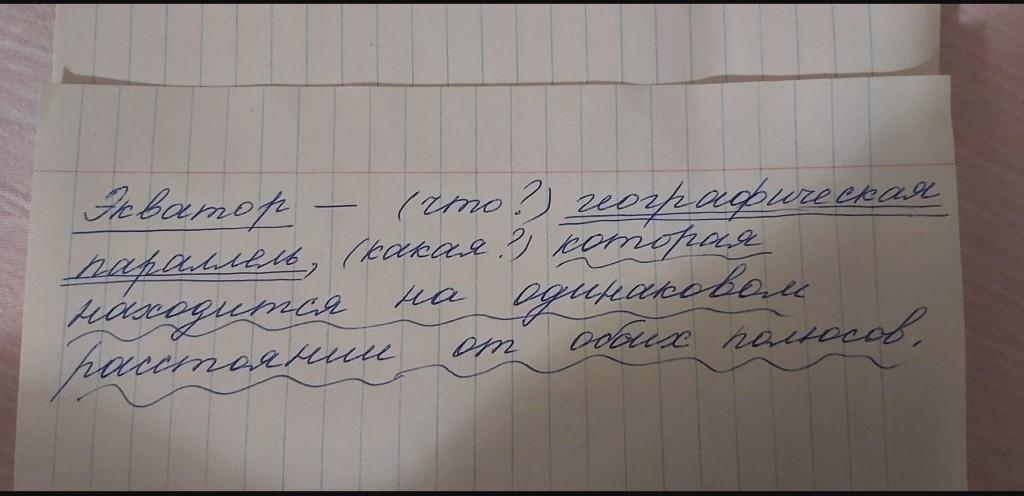 Экватор — (что?) географическая
параллель, (какая?) которая
находится на одинаковом
расстоянии от обоих полюсов.